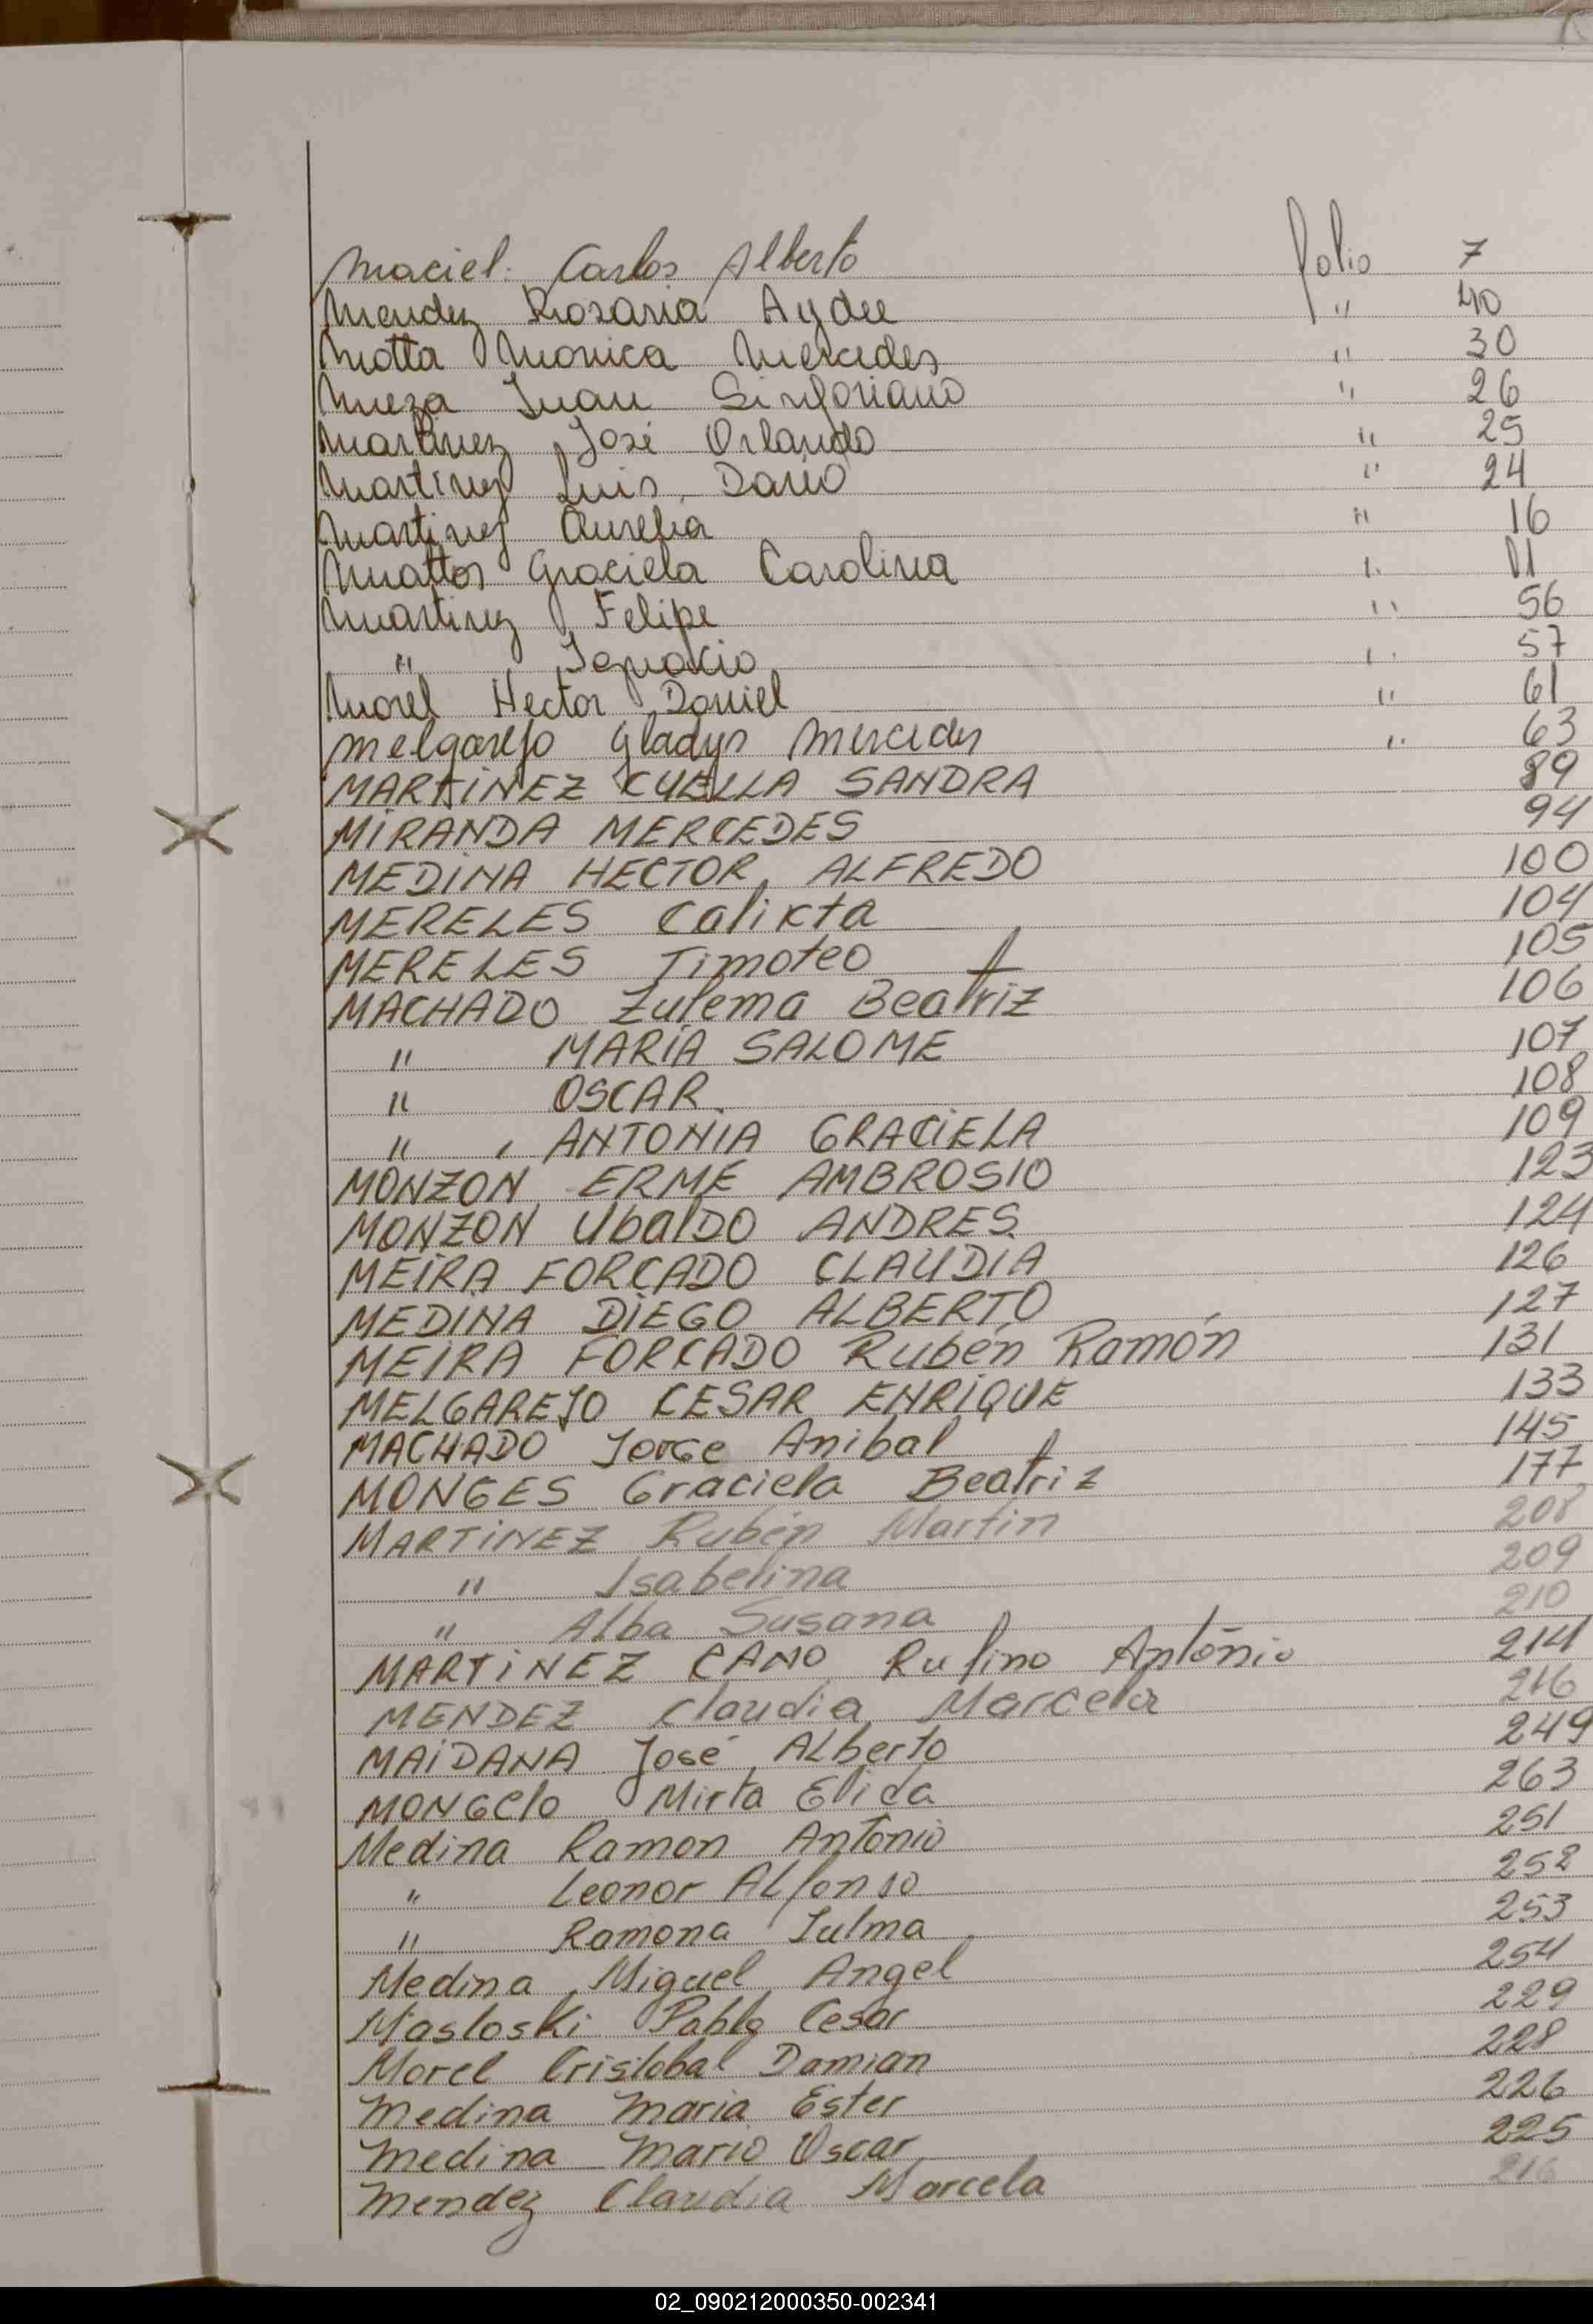 Maciel. Carlos Alberto folio 7
Mendez Rosaria Aydee " 40
Motta Monica Mercedes " 30
Meza Juan Sinforiano " 26
Martinez José Orlando " 25
Martinez Luis Dario " 24
Martinez Aurelia " 16
Mattos Graciela Carolina "
Martinez Felipe " 56
" Ignacio " 57
Morel Hector Daniel " 61
Melgarejo Gladys Mercedes " 63
MARTINEZ CUELLA SANDRA 89
MIRANDA MERCEDES 94
MEDINA HECTOR ALFREDO 100
MERELES Calixta 104
MERELES Timoteo 105
MACHADO Zulema Beatriz 106
" MARIA SALOME 107
" OSCAR 108
" ANTONIA GRACIELA 109
MONZON ERME AMBROSIO 123
MONZON UbalDO ANDRES 124
MEIRA FORCADO CLAUDIA 126
MEDINA DIEGO ALBERTO 127
MEIRA FORCADO Rubén Ramón 131
MELGAREJO CESAR ENRIQUE 133
MACHADO JorGe Anibal 145
MONGES Graciela Beatriz 177
MARTINEZ Rubén Martin 208
" Isabelina 209
" Alba Susana 210
MARTINEZ CANO Rufino Antonio 214
MENDEZ Claudia Marcela 216
MAIDANA José ALberto 249
MONGelo Mirta Elida 263
Medina Ramon Antonio 251
" Leonor ALfonso 252
" Ramona Julma 253
Medina Miguel Angel 254
Masloski Pablo Cesar 229
Morel Cristobal Damian 228
Medina Maria Ester 226
Medina Mario Oscar 225
Mendez Claudia Marcela 216
02_090212000350-002341